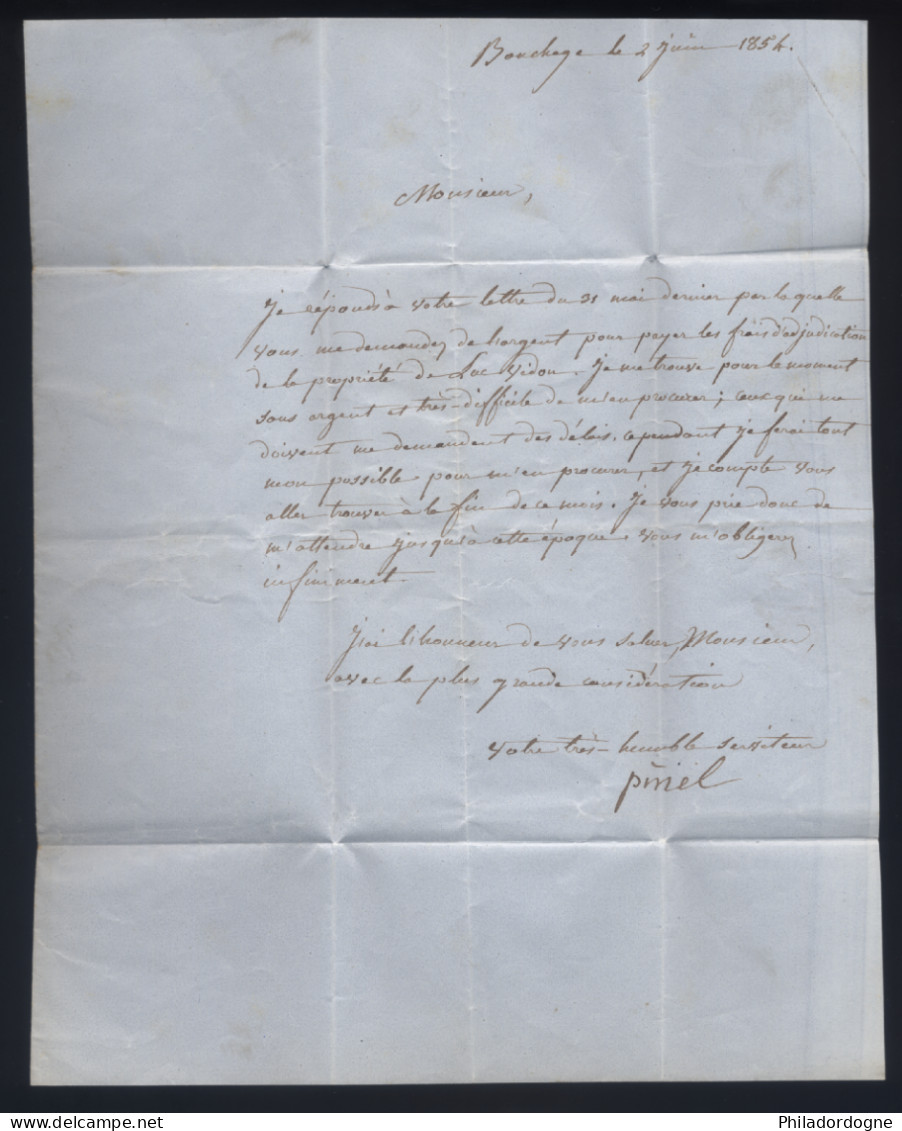 Bouchage le 2 juin 1854.
Monsieur,
Je réponds à votre lettre du 31 mai dernier par laquelle
vous me demandez de l'argent pour payer les frais d'adjudication
de la propriété de Luc Vidon. Je me trouve pour le moment
sans argent et très-difficile de m'en procurer; ceux qui me
doivent me demandent des délais. cependant je ferai tout
mon possible pour m'en procurer, et je compte vous
aller trouver à la fin de ce mois. Je vous prie donc de
m'attendre jusqu'à cette époque. vous m'obligerez
infiniment.
J'ai l'honneur de vous saluer, Monsieur,
avec la plus grande considération
votre très-humble serviteur
piniel
Philadordogne